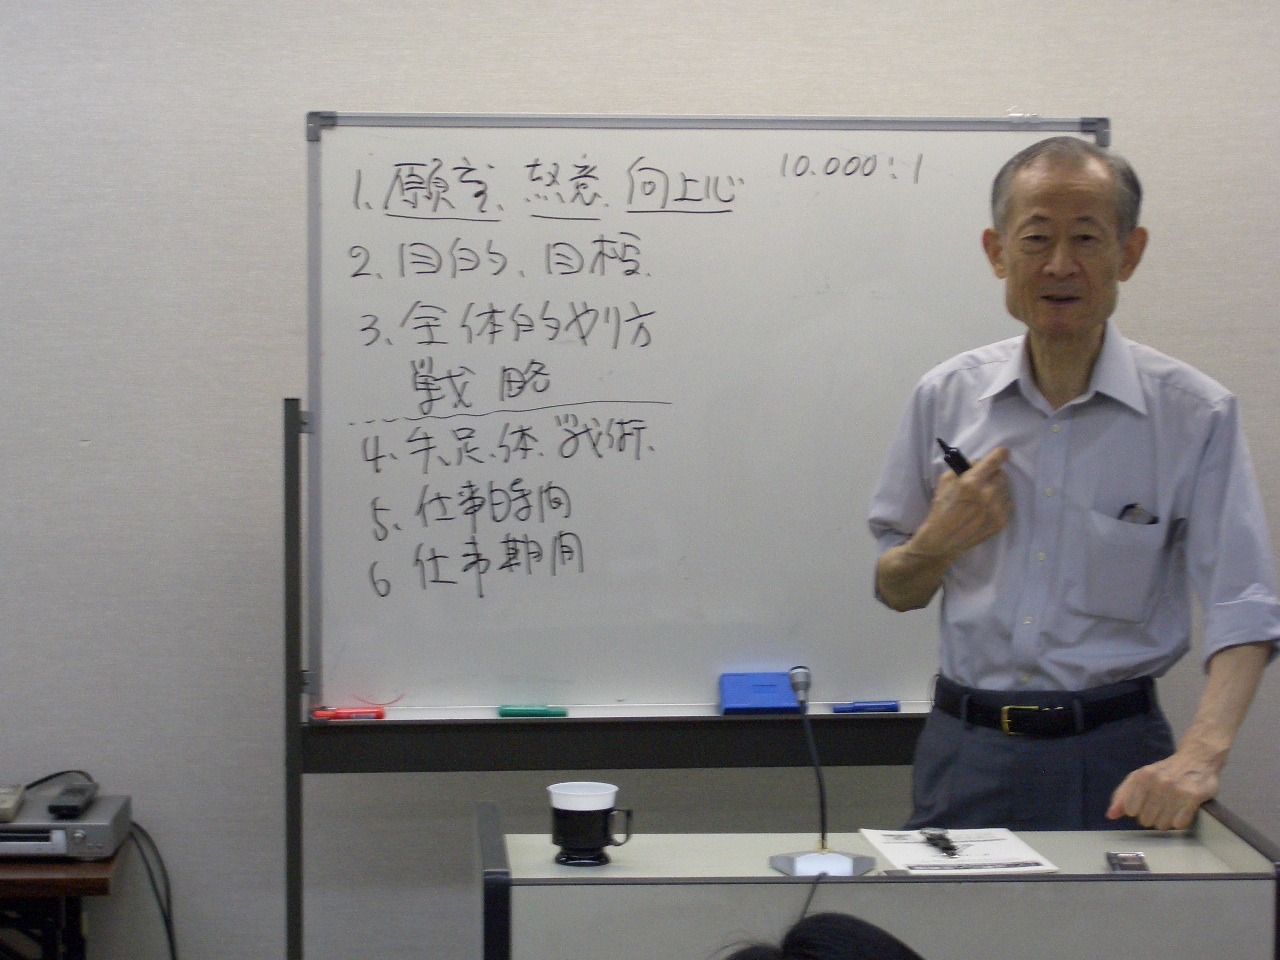 1. 願望、熱意、向上心 10.000:1
2、目的、目標、
3、全体的やり方
戦略
4、手、足、体、戦術、
5、仕事時間
6 仕事期間